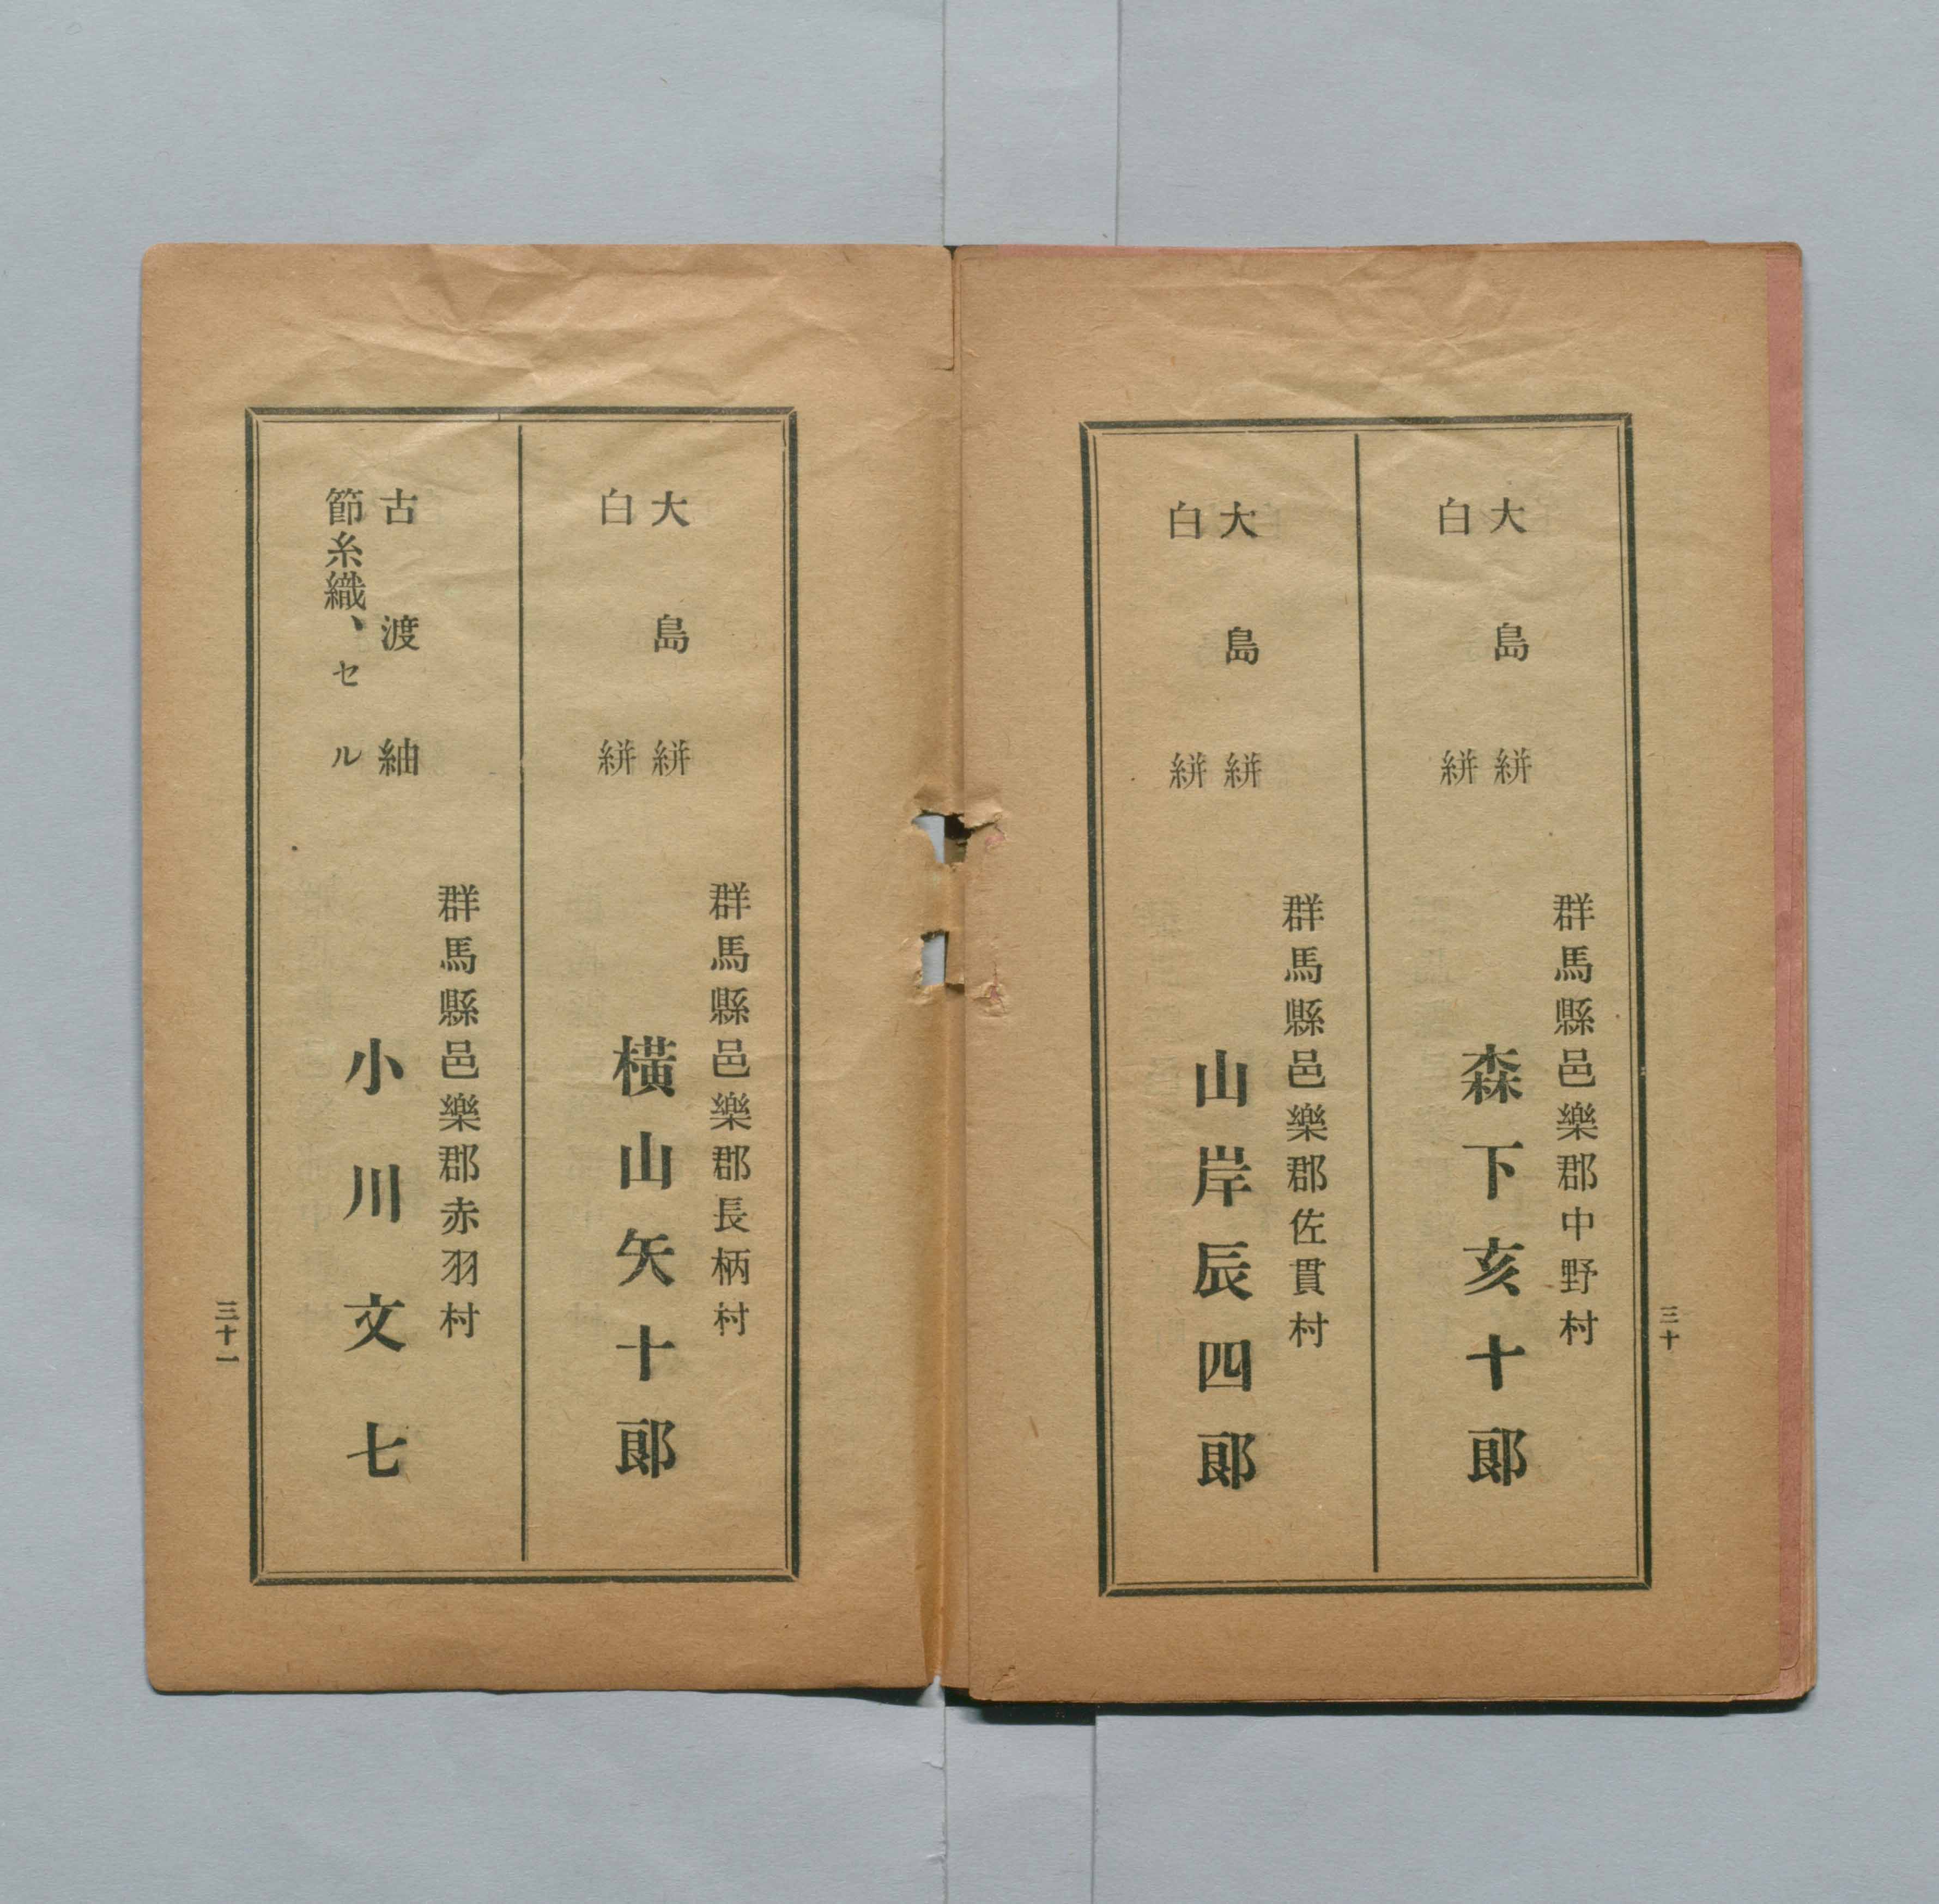 大島絣
白絣
群馬縣邑樂郡中野村
森下亥十郞
大島絣
白絣
群馬縣邑樂郡佐貫村
山岸辰四郞
三十
大島絣
白絣
群馬縣邑樂郡長柄村
橫山矢十郞
古渡紬
節糸織、セル
群馬縣邑樂郡赤羽村
小川文七
三十一